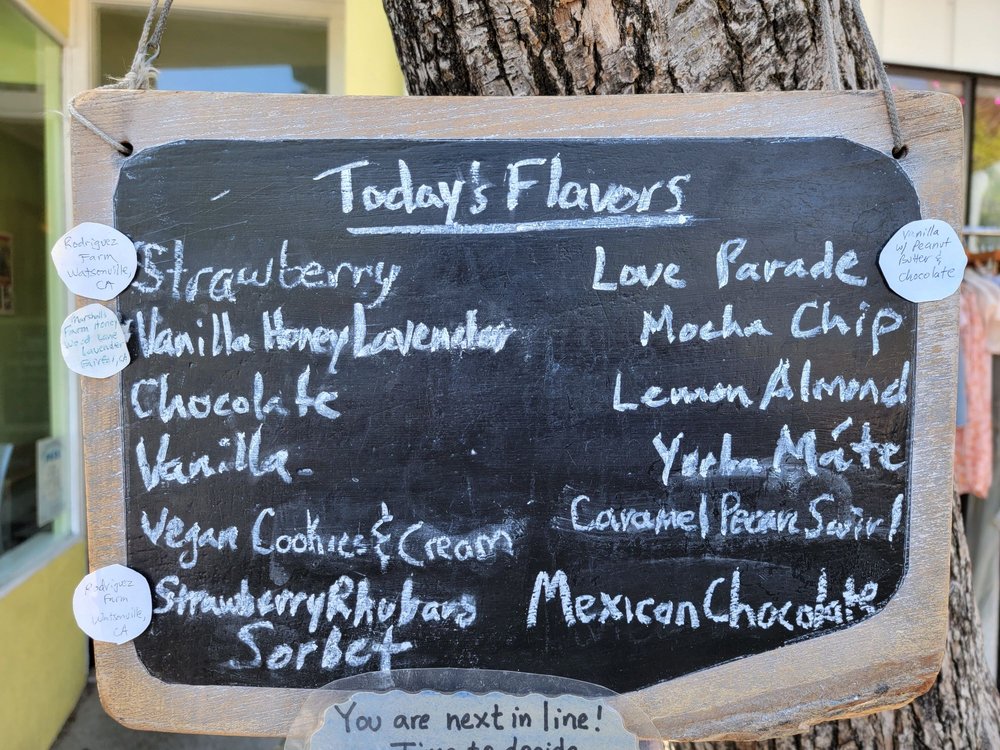 Today's Flavors
Rodriguez
Farm
Watsonville,
CA
Strawberry
Marshalls
Farm Honey
Lavender
Fairfax, CA
Vanilla Honey Lavender
Chocolate
Vanilla
Vegan Cookies & Cream
Rodriguez
Farm
Watsonville,
CA
Strawberry Rhubarb
Sorbet
Love Parade
Vanilla
w/ Peanut
Butter &
Chocolate
Mocha Chip
Lemon Almond
Yerba Máte
Caramel Pecan Swirl
Mexican Chocolate
You are next in line!
Time to decide